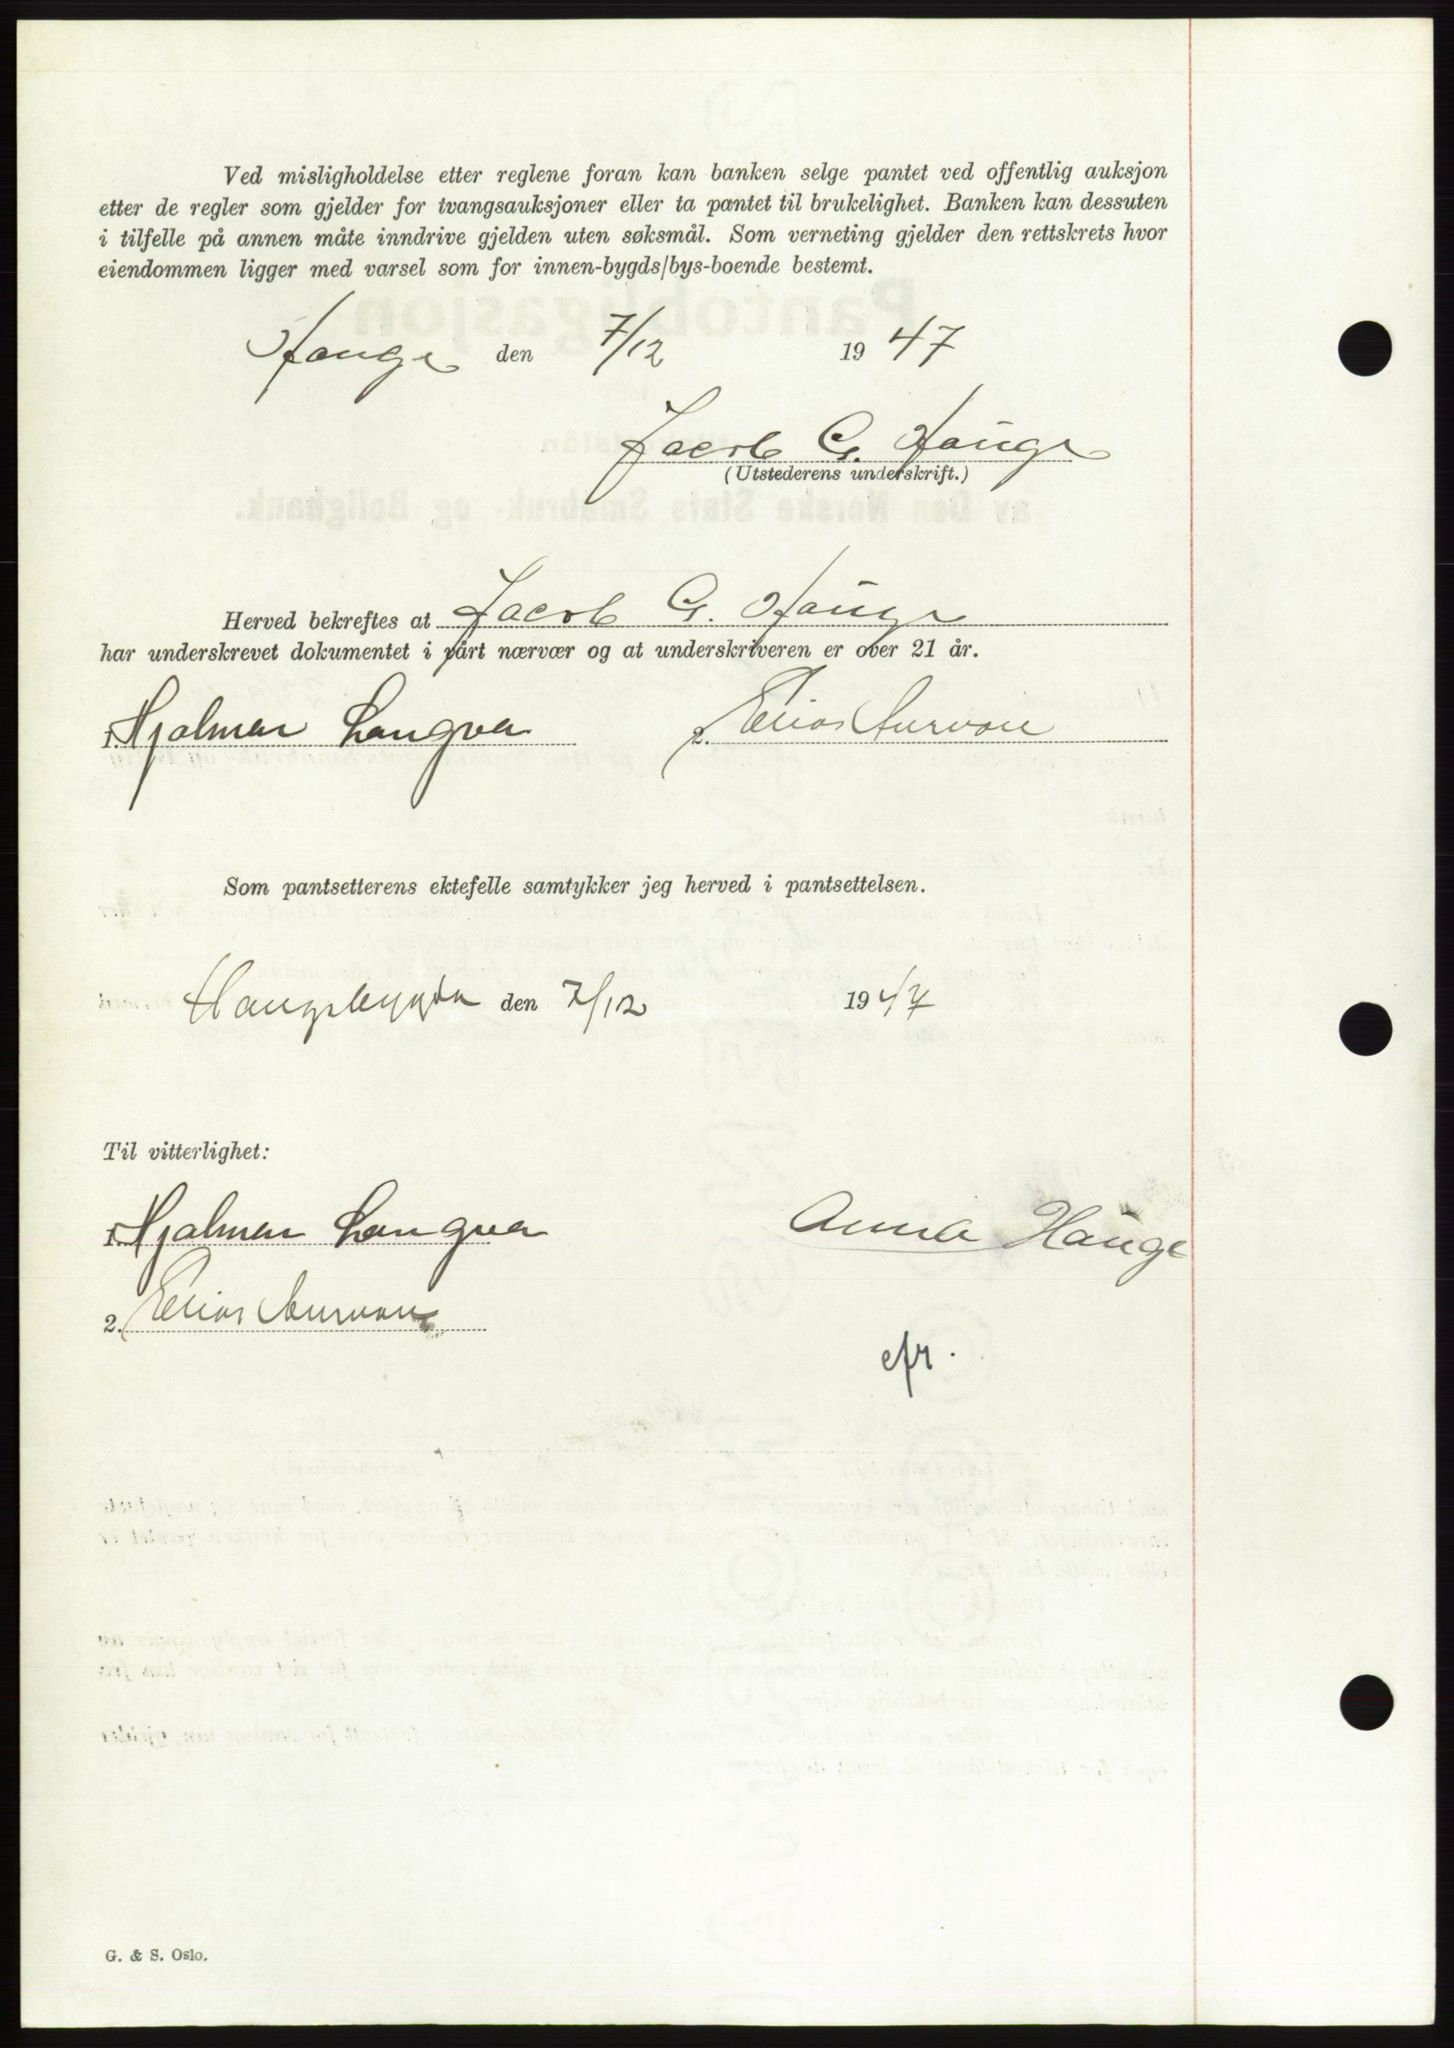 Ved misligholdelse etter reglene foran kan banken selge pantet ved offentlig auksjon
etter de regler som gjelder for tvangsauksjoner eller ta pantet til brukelighet. Banken kan dessuten
i tilfelle på annen måte inndrive gjelden uten søksmål. Som verneting gjelder den rettskrets hvor
eiendommen ligger med varsel som for innen-bygds/bys-boende bestemt.
Hauge den 7/12 1947
Jacob G. Hauge
(Utstederens underskrift.)
Herved bekreftes at Jacob G. Hauge
har underskrevet dokumentet i vårt nærvær og at underskriveren er over 21 år.
1. Hjalmar Langva 2. Elias Aurvoll
Som pantsetterens ektefelle samtykker jeg herved i pantsettelsen.
Haugsbygda den 7/12 1947
Til vitterlighet:
1. Hjalmar Langva Anna Hauge
2. Elias
efr.
G. & S. Oslo.